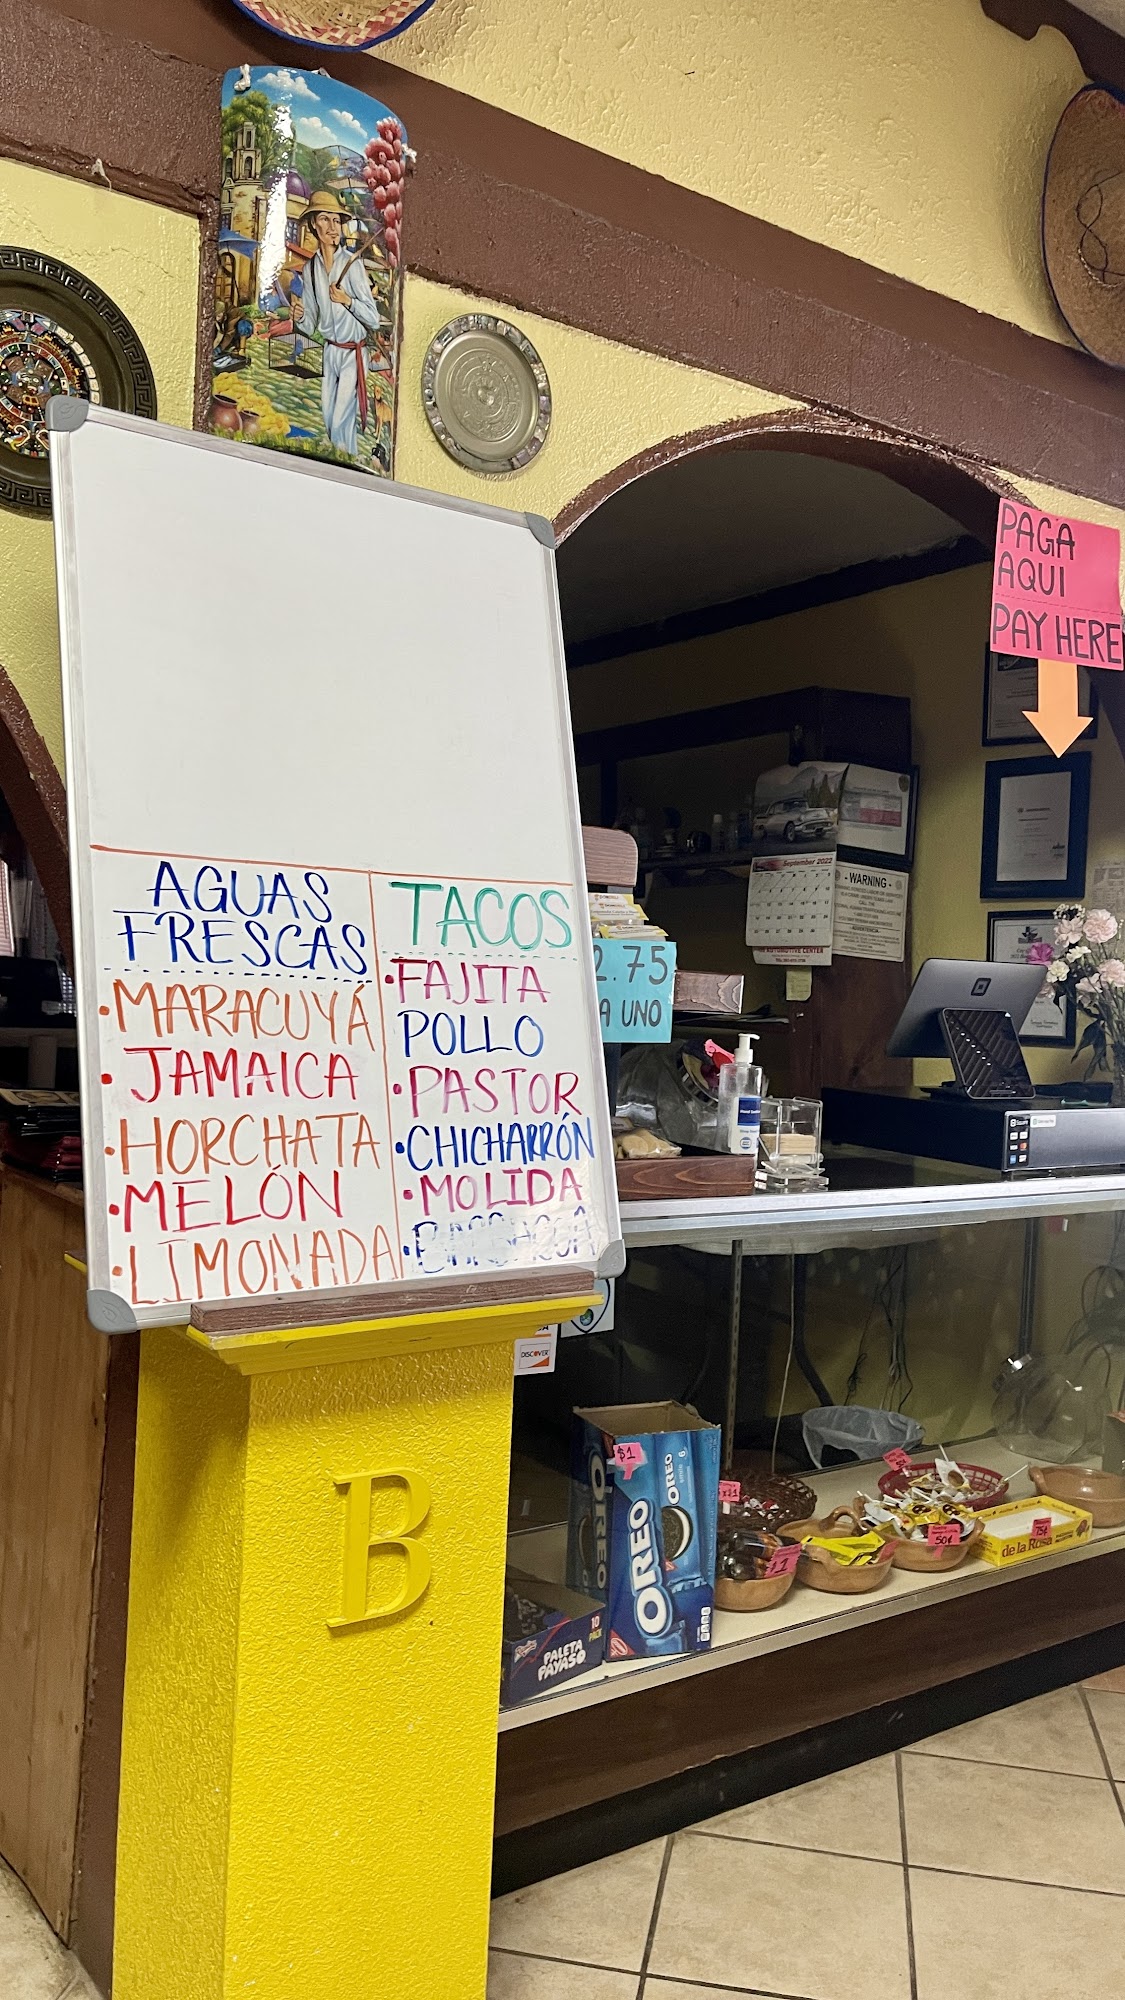 AGUAS
FRESCAS
•MARACUYÁ
•JAMAICA
•HORCHATA
•MELÓN
•LIMONADA
TACOS
•FAJITA
POLLO
•PASTOR
•CHICHARRÓN
•MOLIDA
PAGA
AQUI
PAY HERE
September 2022
- WARNING -
2.75
A UNO
DISCOVER
$1
OREO
OREO
OREO
10
PACK
PALETA
PAYASO
50¢
75¢
de la Rosa